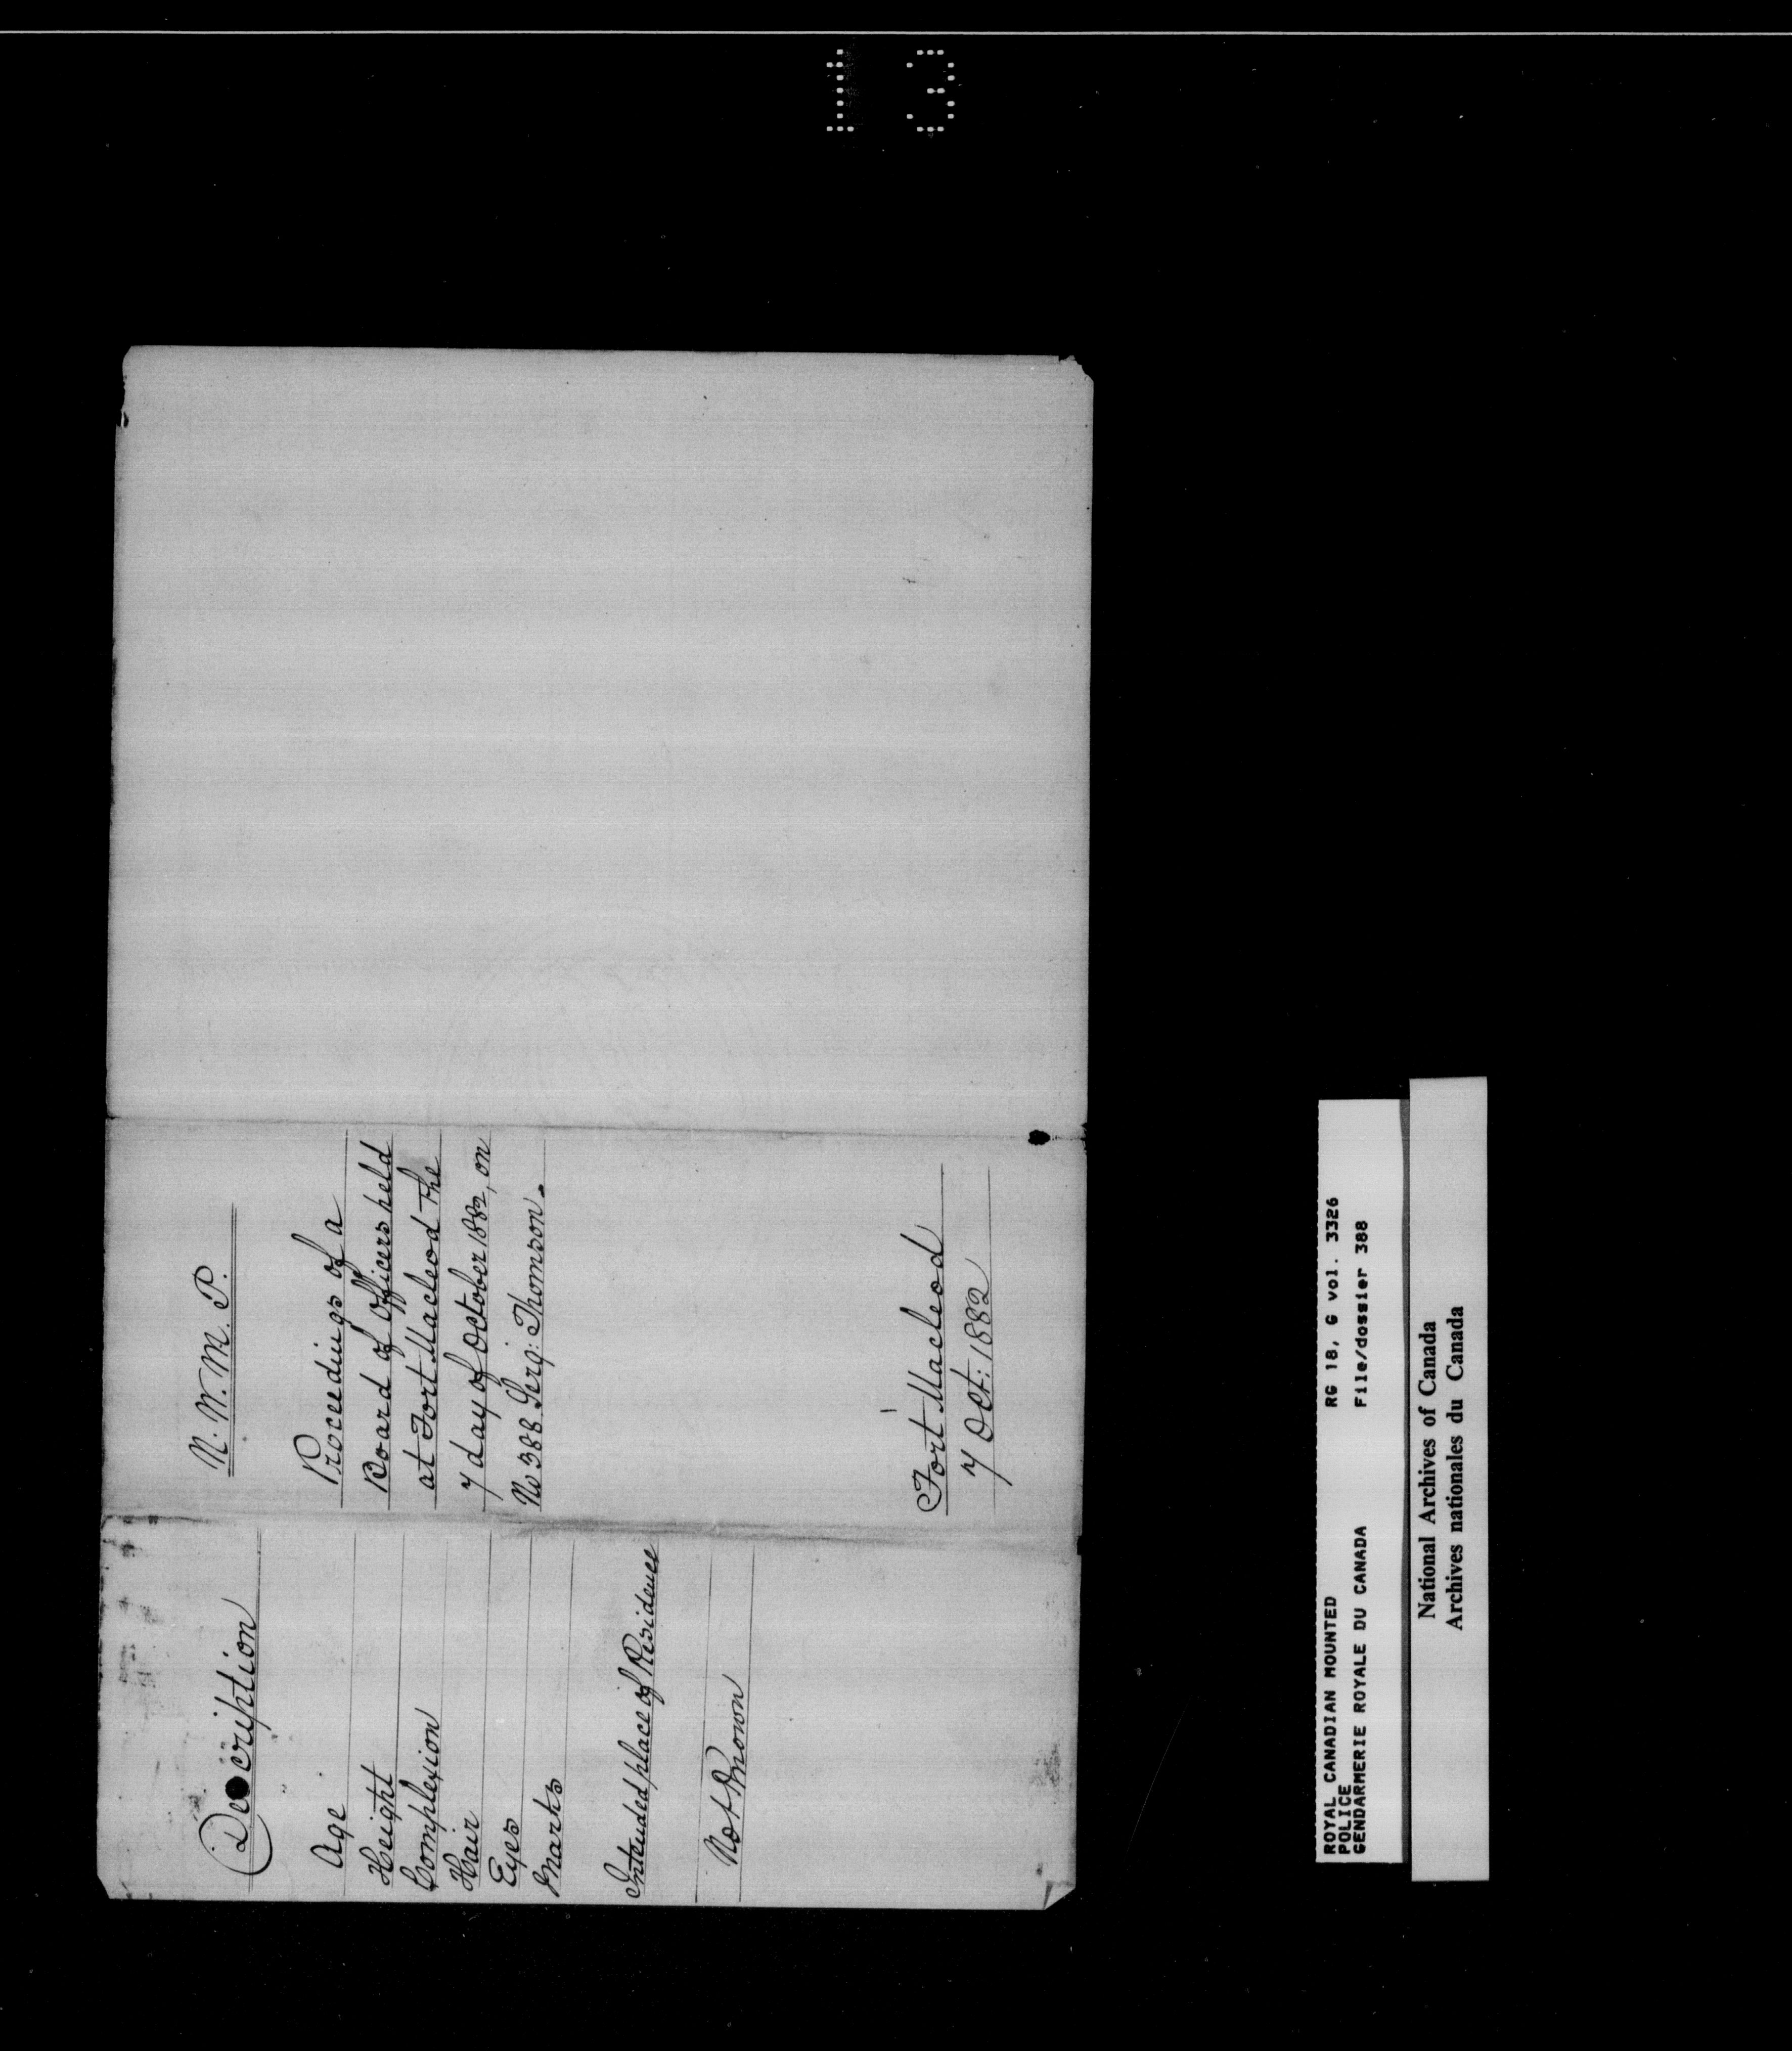 N. W. M. P.
Proceedings of a
Board of Officers held
at Fort Macleod the
7 day of October 1882, on
No 388 Serg: Thomson.
Fort Macleod
7 Oct: 1882
Description
Age
Height
Complexion
Hair
Eyes
Marks
Intended place of Residence
Not Known
ROYAL CANADIAN MOUNTED RG 18, G vol. 3326
POLICE
GENDARMERIE ROYALE DU CANADA File/dossier 388
National Archives of Canada
Archives nationales du Canada